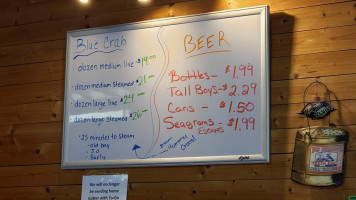 Blue Crab
· dozen medium live $14.00
· dozen medium Steamed $21.00
· dozen large live $24.00
· dozen large steamed $26.00
· 25 minutes to steam
- old bay
- J.O.
- Garlic
BEER
Bottles - $1.99
Tall Boys - $2.29
Cans - $1.50
Seagrams - $1.99
Escapes
We will no longer
be sending home
butter with Turbo